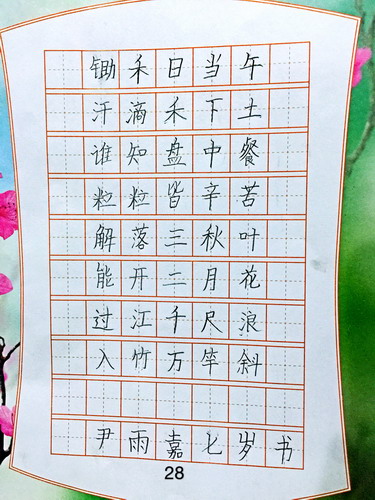 锄禾日当午
汗滴禾下土
谁知盘中餐
粒粒皆辛苦
解落三秋叶
能开二月花
过江千尺浪
入竹万竿斜
尹雨嘉七岁书
28